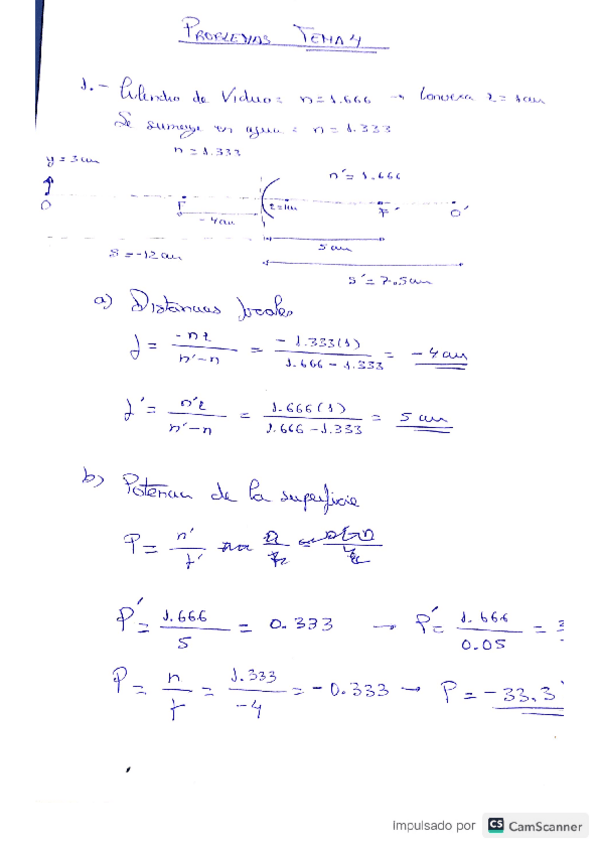 PROBLEMAS TEMA 4
1.- Cilindro de Vidrio: n=1.666 → Convexa r=1cm
Se sumerge en agua: n=1.333
n=1.333
y=3cm
n'=1.666
O F r=1cm F' O'
-4cm
5cm
S=-12cm
S'=7.5cm
a) Distancias focales
f = -nr / n'-n = -1.333(1) / 1.666-1.333 = -4cm
f' = n'r / n'-n = 1.666(1) / 1.666-1.333 = 5cm
b) Potencia de la superficie
P = n' / f'
P' = 1.666 / 5 = 0.333 → P' = 1.666 / 0.05 =
P = n / f = 1.333 / -4 = -0.333 → P = -33.3
Impulsado por CS CamScanner